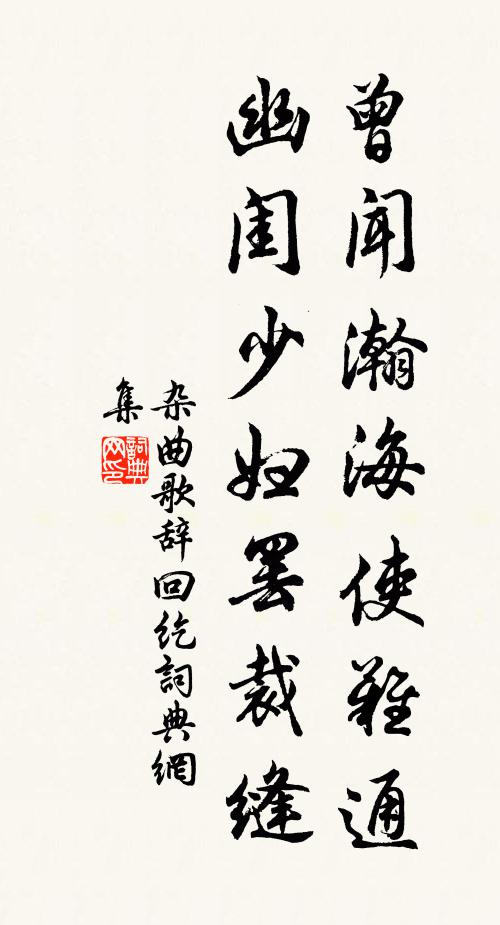 曾闻瀚海使難通
幽闺少妇罢裁缝
杂曲歌辞回纥詞典網
集
詞典
网印